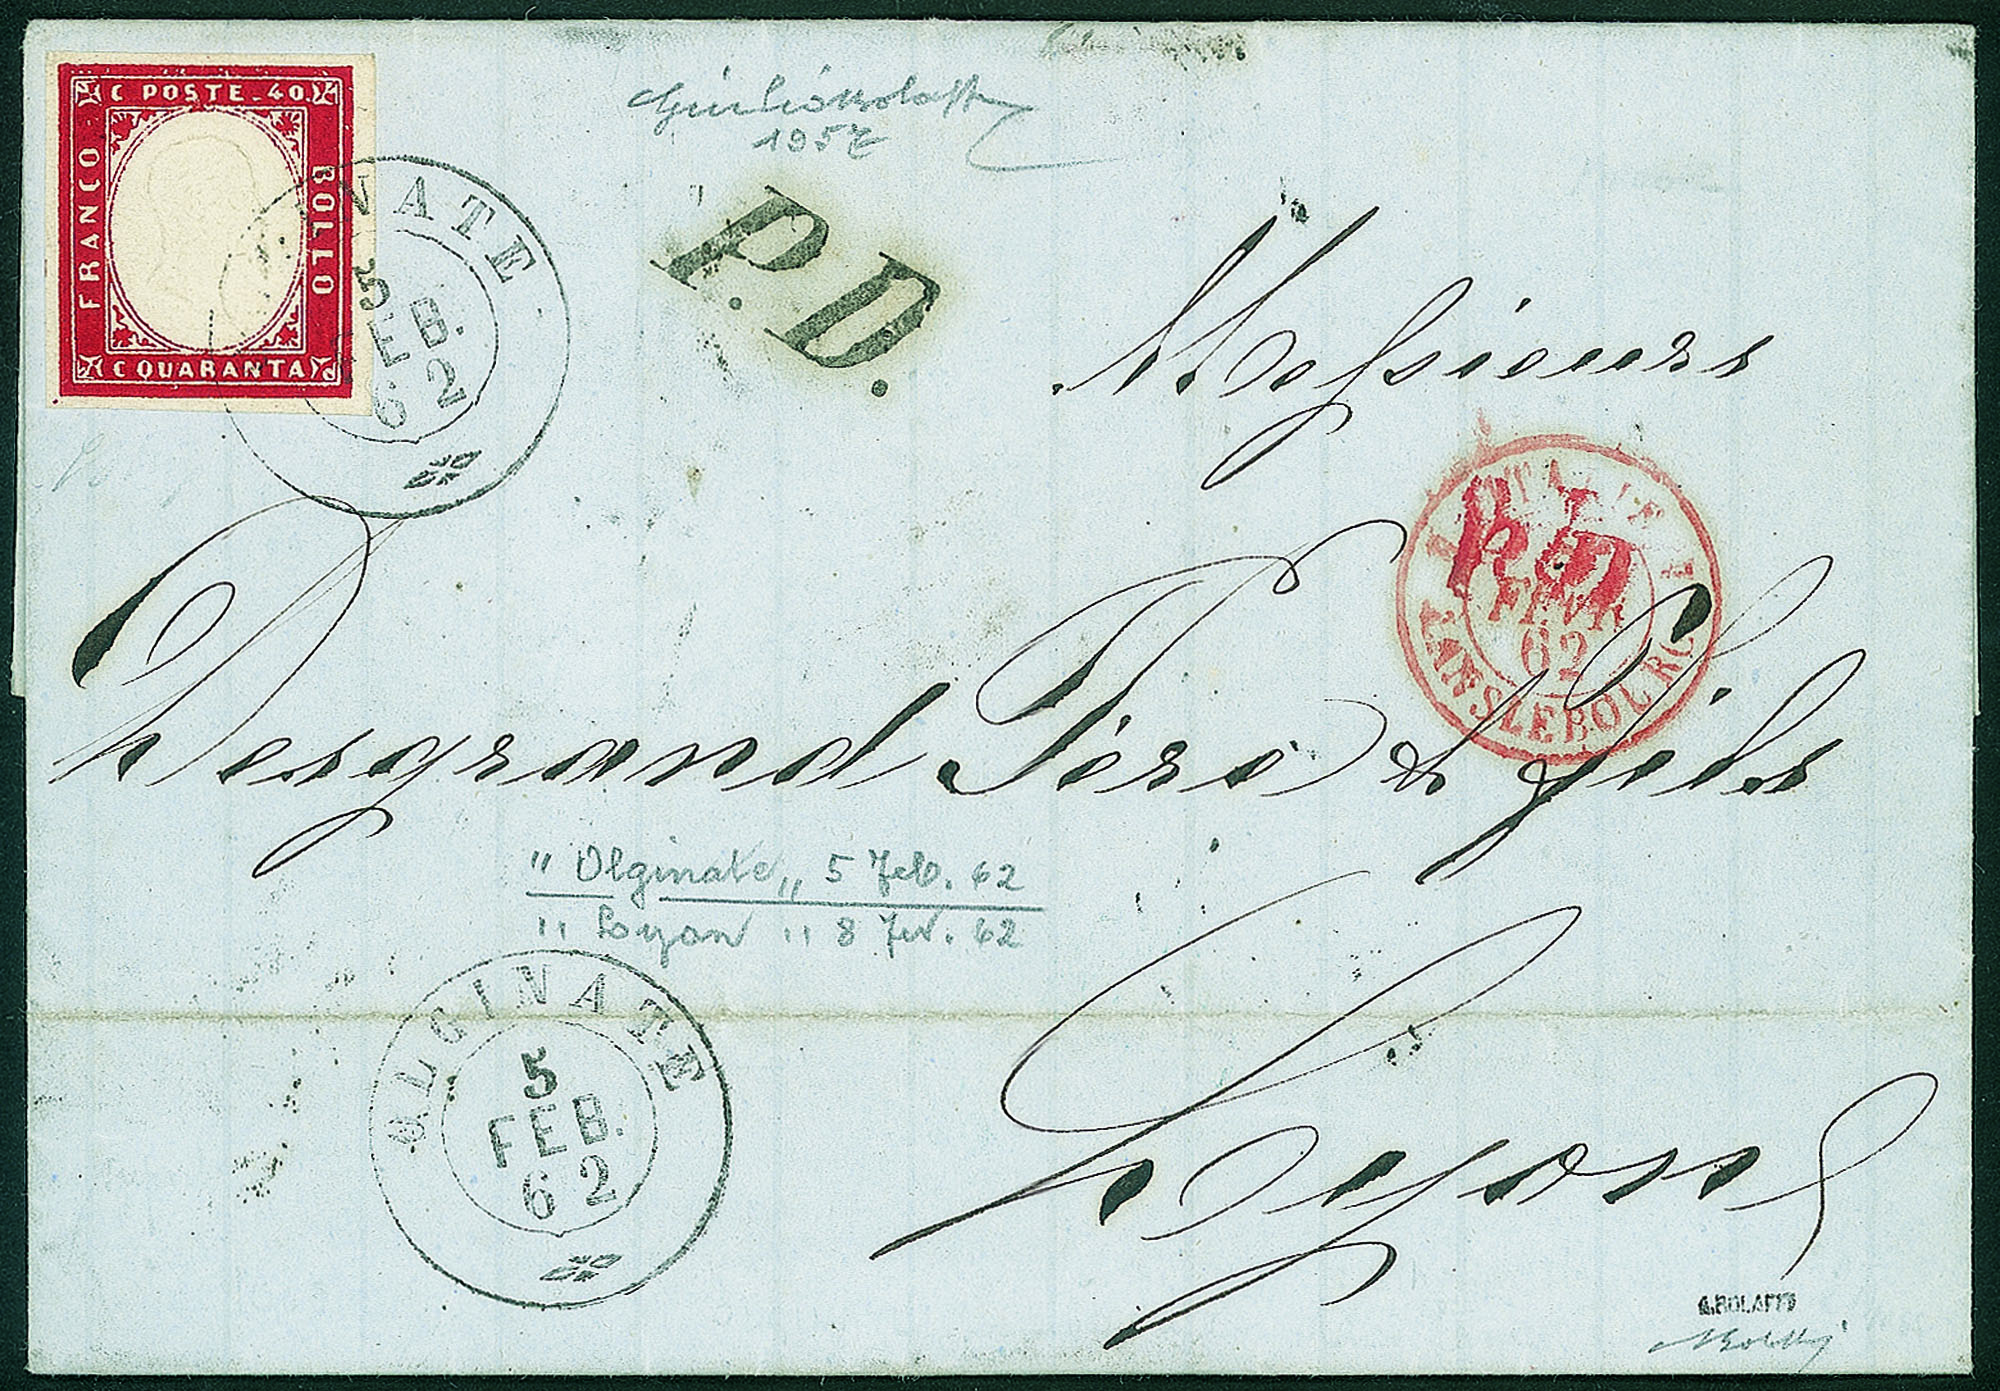 C POSTE . 40
FRANCO
BOLLO
C QUARANTA
INATE
5
FEB.
62
P.D.
Messieurs
ITALIE
P.D.
FEVR
62
LANSLEBOURG
Desgrand Père & Fils
" Olginate „ 5 Feb. 62
" Lyon " 8 Fev. 62
OLGINATE
5
FEB.
62
Lyon
A.BOLAFFI